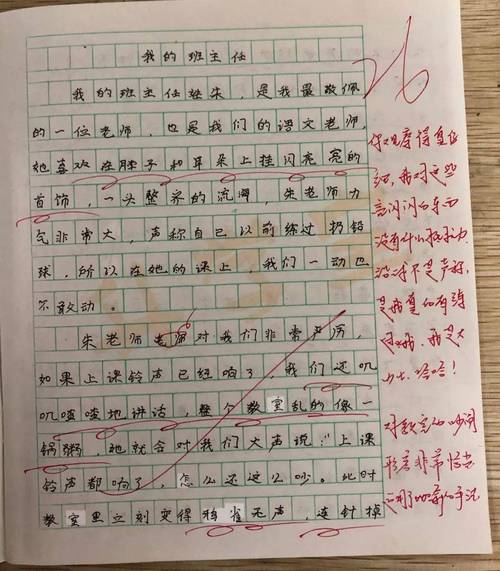 我的班主任
我的班主任姓朱，是我最敬佩
的一位老师，也是我们的语文老师，
她喜欢在脖子和耳朵上挂闪亮亮的
首饰，一头整齐的流海，朱老师力
气非常大，声称自己以前练过扔铅
球，所以在她的课上，我们一动也
不敢动。
朱老师老师对我们非常严厉，
如果上课铃声已经响了，我们还叽
叽喳喳地讲话，整个教室乱的像一
锅粥，她就会对我们大声说："上课
铃声都响了，怎么还这么吵。此时
教室里立刻变得鸦雀无声，连针掉
26
你观察得真仔
细，我对这些
亮闪闪的东西
没有什么抵抗力
这不是声称，
是我真的有得
力士，哈哈！
对教室的吵闹
形容非常恰当